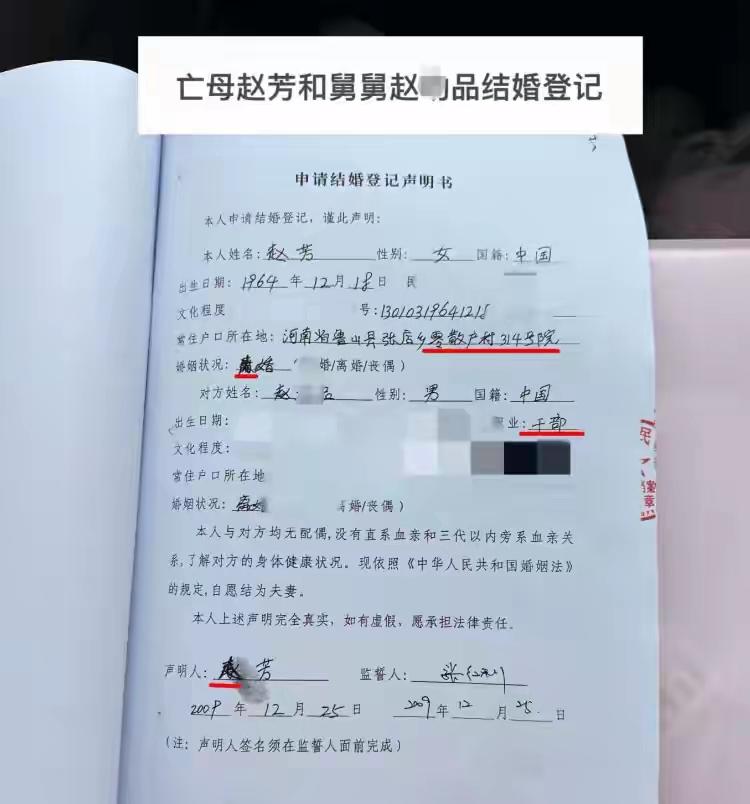 亡母赵芳和舅舅赵品结婚登记
申请结婚登记声明书
本人申请结婚登记，谨此声明：
本人姓名：赵芳 性别：女 国籍：中国
出生日期：1964年12月18日 民
文化程度 号：1301031964121
常住户口所在地：河南省鲁山县张店乡零散户村314号院
婚姻状况：离婚 婚/离婚/丧偶）
对方姓名：赵 性别：男 国籍：中国
出生日期： 业：干部
文化程度：
常住户口所在地
婚姻状况： 离婚/丧偶）
本人与对方均无配偶,没有直系血亲和三代以内旁系血亲关
系,了解对方的身体健康状况。现依照《中华人民共和国婚姻法》
的规定,自愿结为夫妻。
本人上述声明完全真实，如有虚假，愿承担法律责任。
声明人：赵芳 监誓人：张
2009年12月25日 2009年12月25日
（注：声明人签名须在监誓人面前完成）
民
章